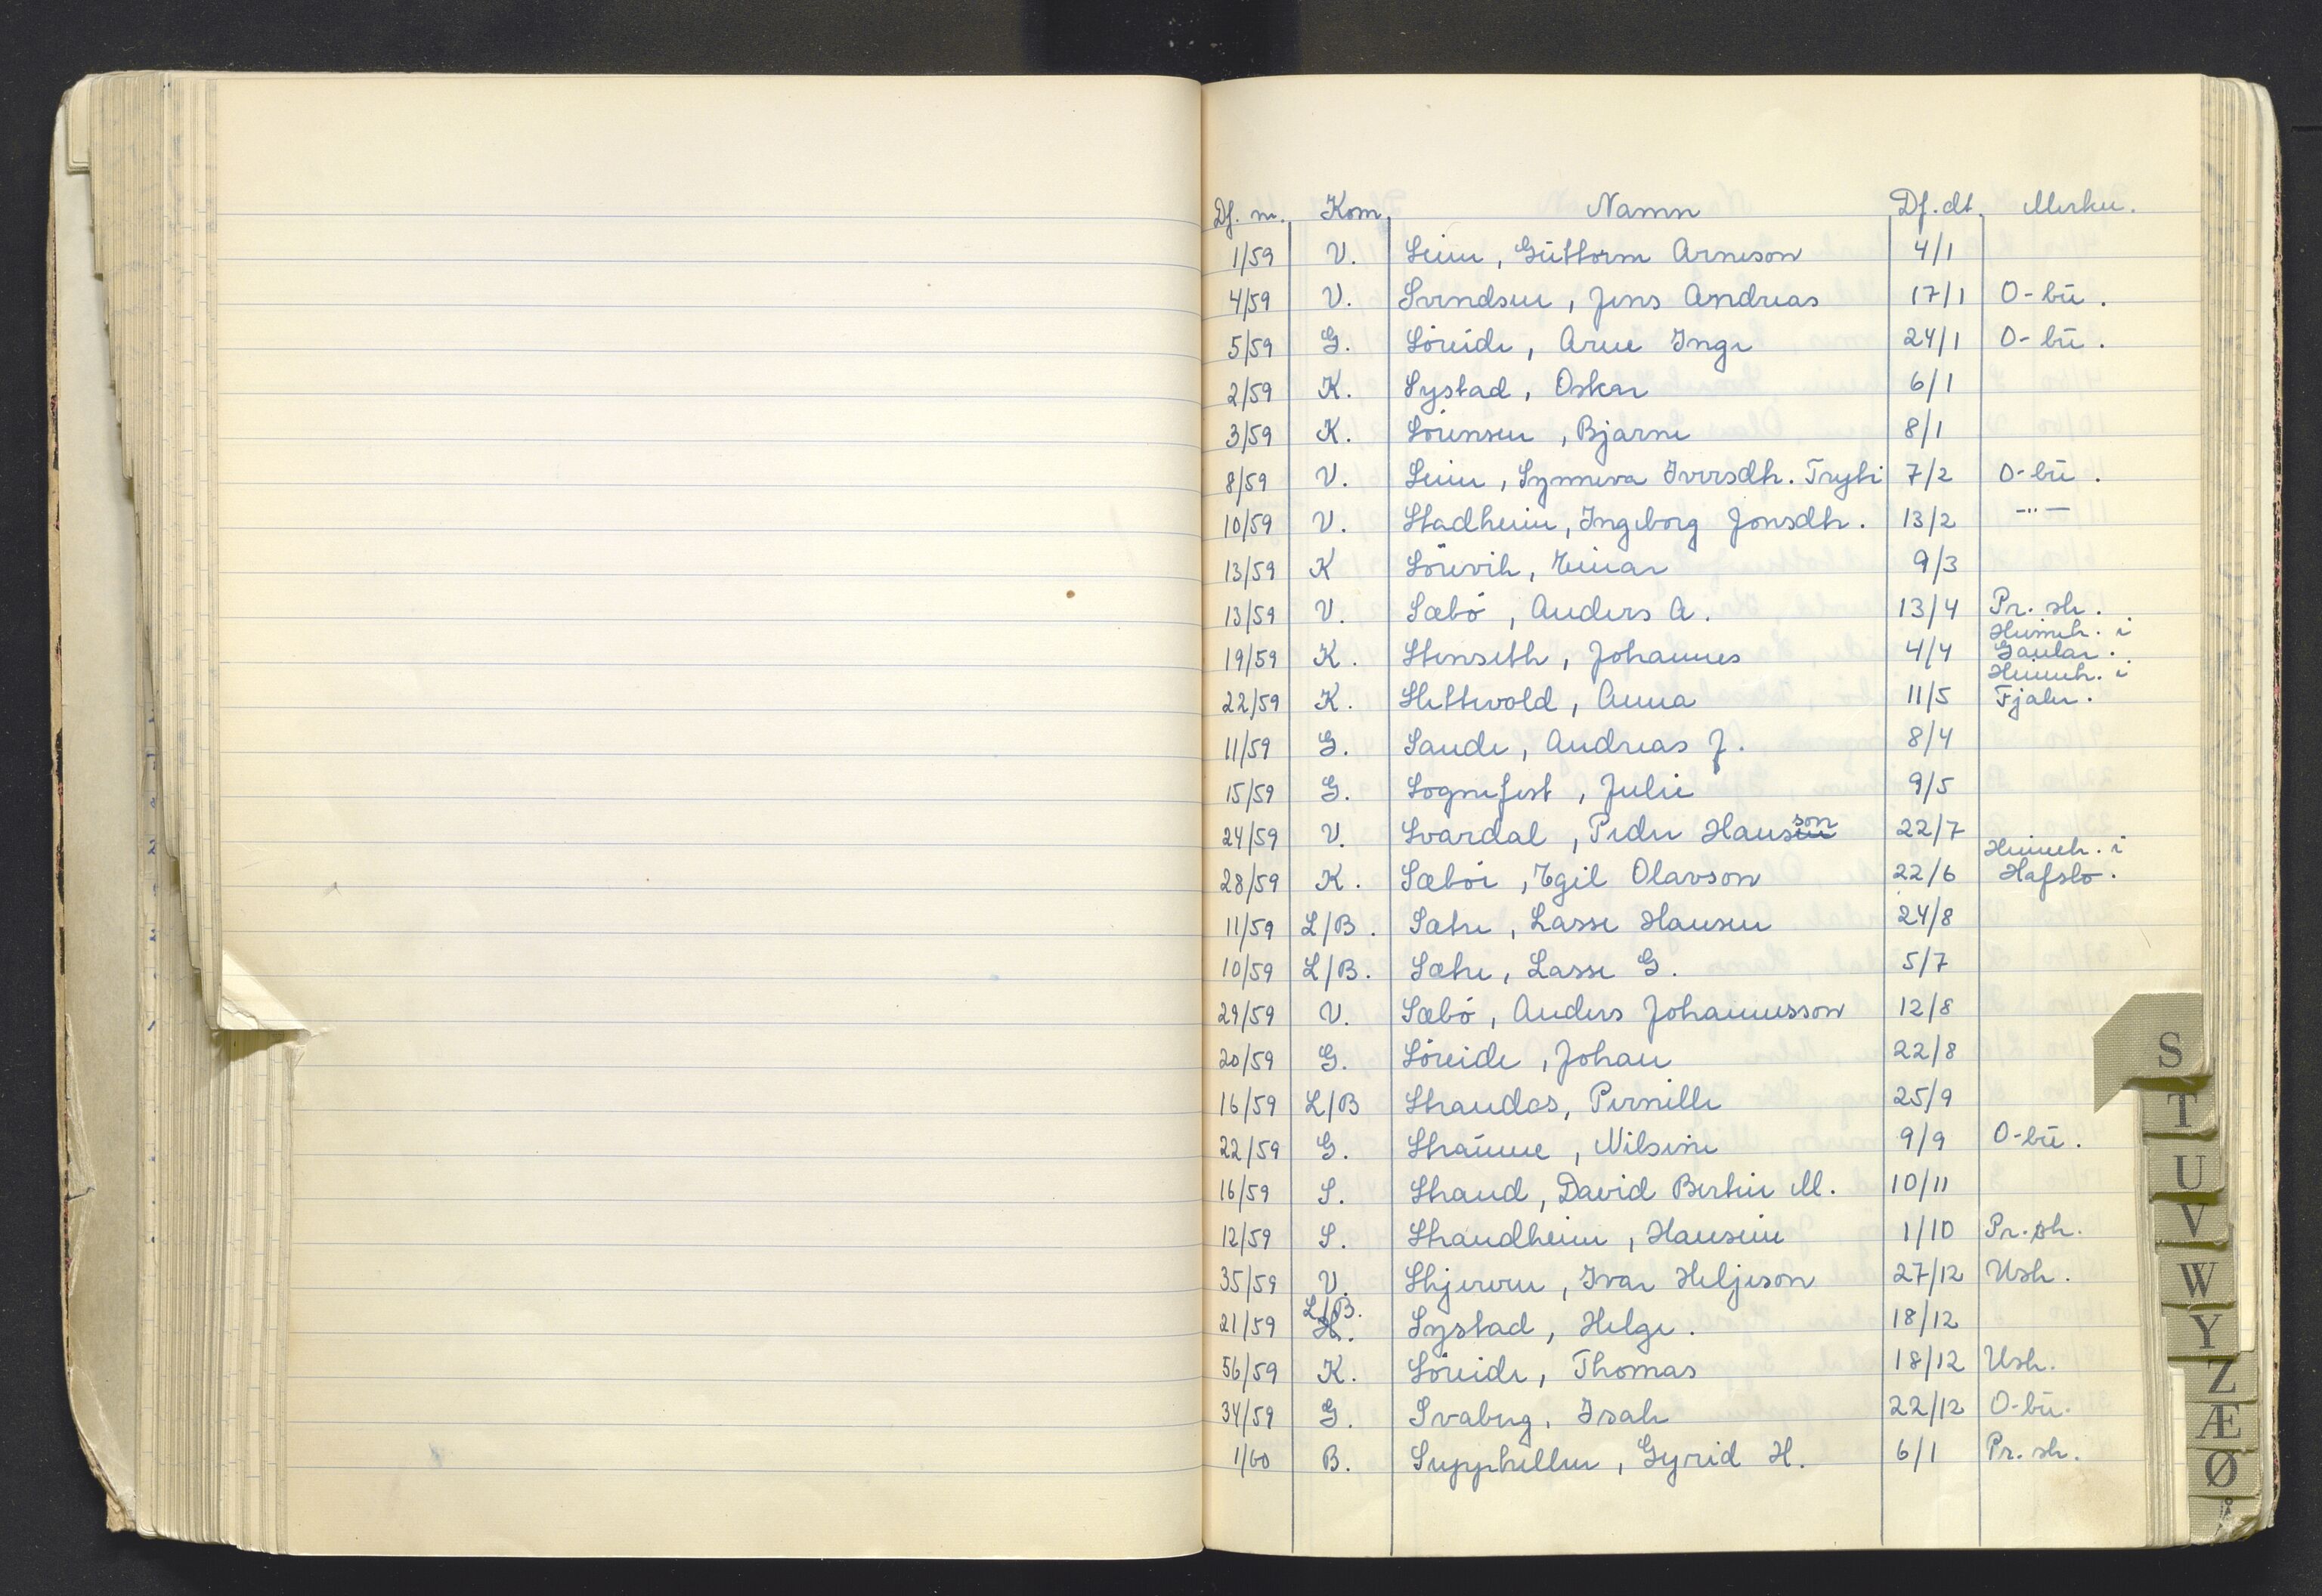 Df. nr. Kom. Namn Df. dt. Merkn.
1/59 V. Seim, Guttorm Arneson 4/1
4/59 V. Svendsen, Jens Andreas 17/1 O-bu.
5/59 G. Söreide, Arne Inge 24/1 O-bu.
2/59 K. Systad, Oskar 6/1
3/59 K. Sörensen, Bjarne 8/1
8/59 V. Seim, Synneva Iversdtr. Tryti 7/2 O-bu.
10/59 V. Stadheim, Ingeborg Jonsdtr. 13/2 -"-
13/59 K Sörevik, Einar 9/3
13/59 V. Sæbö, Anders A. 13/4 Pr. sk.
19/59 K. Stenseth, Johannes 4/4 Heimeh. i Gaular.
22/59 K. Slettevold, Anna 11/5 Heimeh. i Fjaler.
11/59 G. Sande, Andreas J. 8/4
15/59 G. Sognefest, Julie 9/5
24/59 V. Svardal, Peder Hansson 22/7
28/59 K. Sæböe, Egil Olavson 22/6 Heimeh. i Hafslo.
11/59 L/B. Sætre, Lasse Hansen 24/8
10/59 L/B. Sætre, Lasse G. 5/7
29/59 V. Sæbö, Anders Johannesson 12/8
20/59 G. Söreide, Johan 22/8
16/59 L/B Strandos, Pernille 25/9
22/59 G. Straume, Nilsine 9/9 O-bu.
16/59 S. Strand, David Bertin M. 10/11
12/59 S. Strandheim, Hansine 1/10 Pr. sk.
35/59 V. Skjerven, Ivar Heljeson 27/12 Usk.
21/59 L/B. Systad, Helge. 18/12
56/59 K. Söreide, Thomas 18/12 Usk.
34/59 G. Svaberg, Isak 22/12 O-bu.
1/60 B. Supphellen, Gyrid H. 6/1 Pr. sk.
S
T
U
V
W
Y
Z
Æ
Ø
Å